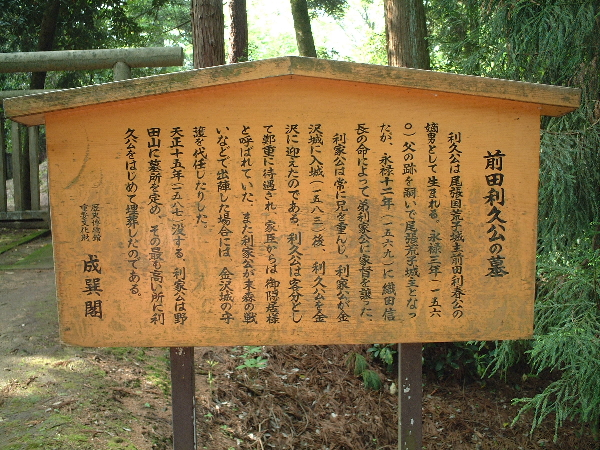 前田利久公の墓
利久公は尾張国荒子城主前田利春公の
嫡男として生まれる。永禄三年(一五六
〇)父の跡を嗣いで尾張荒子城主となっ
たが、永禄十二年(一五六九)に織田信
長の命によって弟利家公に家督を譲た。
利家公は常に兄を重んし、利家公が金
沢城に入城(一五八三)後、利久公を金
沢に迎えたのである。利久公は客分とし
て鄭重に待遇され、家臣からは御隠居様
と呼ばれていた。また利家公が末森の戦
いなどで出陣した場合には、金沢城の守
護を代任したりした。
天正十五年(一五八七)没する。利家公は野
田山に墓所を定め、その最も高い所に利
久公をはじめて埋葬したのである。
歴史博物館
重要文化財
成巽閣